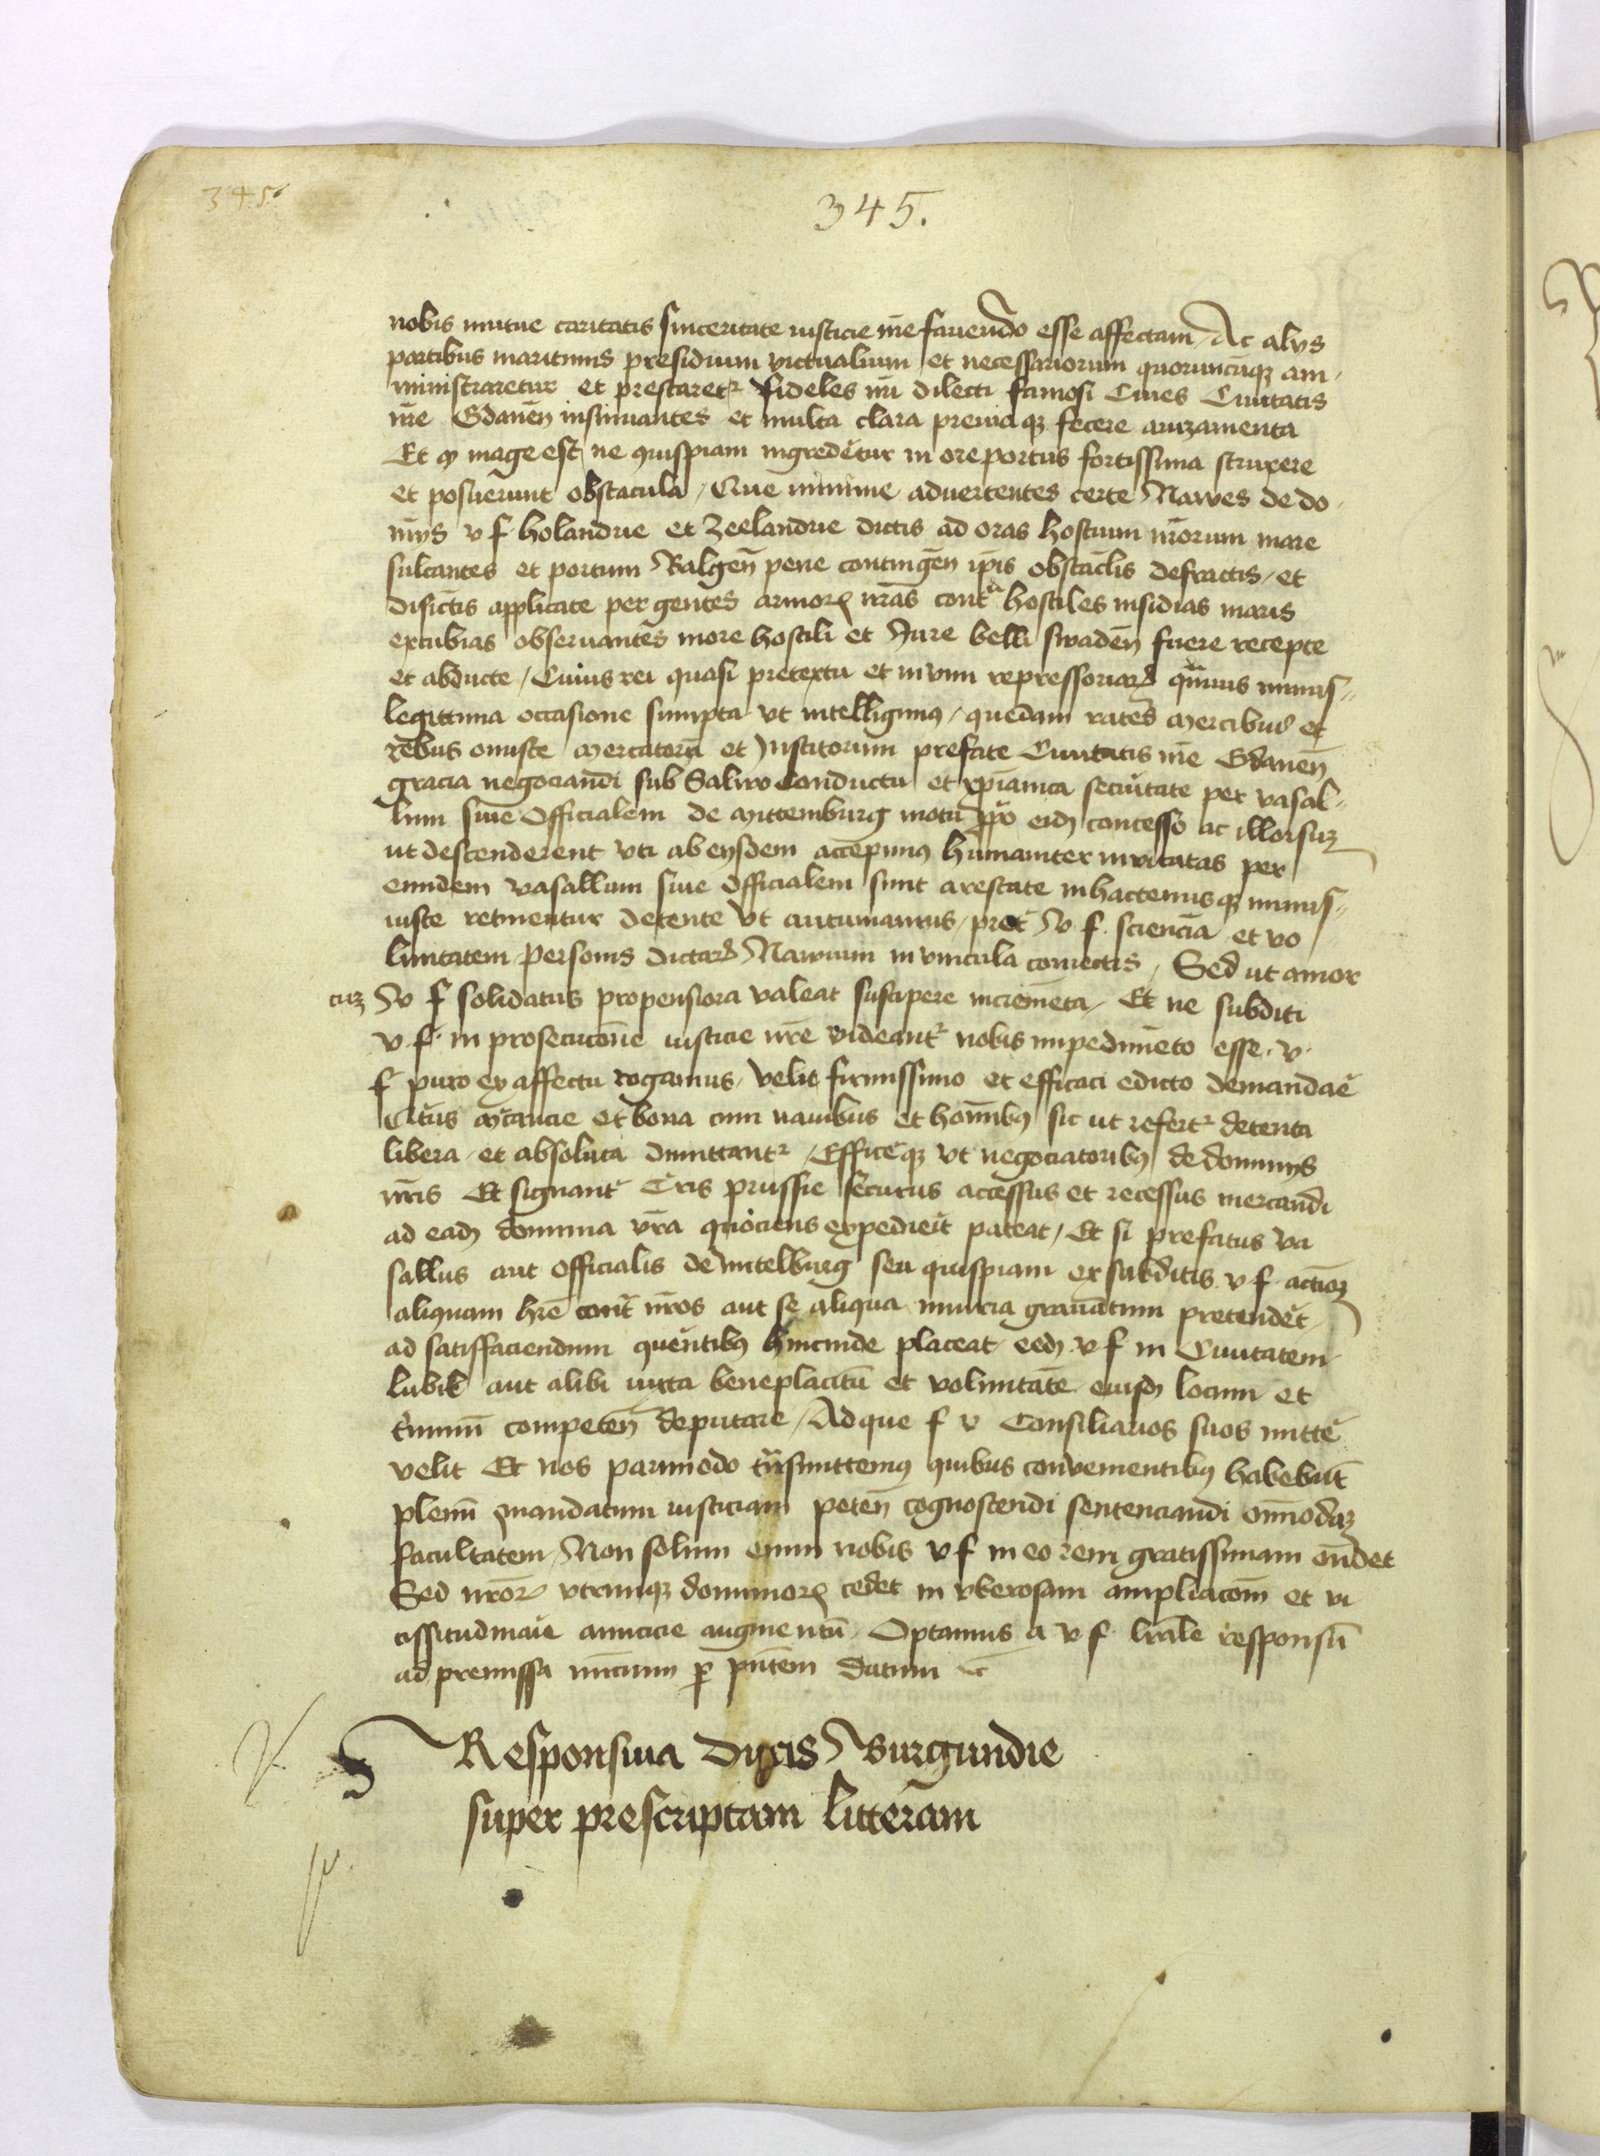 345.
345.
nobis mutue caritatis sinceritate iusticie nr̄e fauendo esse affectam Ac alys
partibus maritimis presidium victualium et necessariorum quorumcūqꝫ am-
ministraretur et prestaretr fideles nr̄i dilecti famosi Ciues Ciuitatis
nr̄e Gdanen̄ insinuantes et multa clara premia qꝫ fecere auizamenta
Et qꝫ mage est ne quispiam ingredetur in ore portus fortissima struxere
et posuerunt obstacula / Que minime aduertentes certe Nawes de do-
mīys v f holandie et Zeelandie dictis ad oras hostium nr̄orum mare
sulcantes et portum Balgen̄ pene contingen̄ ip̄is obstaclis defractis / et
disiectis applicate per gentes armorꝫ nr̄as contra hostiles insidias maris
excubias obseruantes more hostili et Jure belli swaden̄ fuere recepte
et abducte / Cuius rei quasi pretextu et in vim repressoriarꝫ quāuis minus-
legittima occasione sumpta vt intelligimus / quedam rates mercibus et
rebus onuste mercatorū et Institorum prefate Ciuitatis nr̄e Gdanen̄
gracia negociandi sub Saluo Conductu et xp̄ianica secūitate per vasal-
lum siue Officialem de mittemburg motu ꝓprio eidꝫ concesso ac illorsuꝫ
ut descenderent vti ab eysdem accepimus humaniter inuitatas per
eundem vasallum siue officialem sunt arestate inhactenus qꝫ minus-
iuste retinentur detente vt autumamus / preter v. f. scienciā et vo
luntatem personis dictarꝫ Nawium in vincula coniectis / Sed ut amor
cuꝫ v f solidatus propensiora valeat suscipere incremēta / Et ne subditi
v. f. in prosecucōne iusticie nr̄e videantr nobis impedimēto esse. v.
f puro ex affectu rogamus, velit firmissimo et efficaci edicto demandar̄
Citius mercancie et bona cum nauibus et homībꝫ sic ut refertr detenta
libera et absoluta dimittantr / Efficeqꝫ vt negociatoribꝫ de dominys
nr̄is Et signantr Tr̄is prussie securus accessus et recessus mercandi
ad eadꝫ dominia vr̄a quociens expedierit pateat / Et si prefatus va
sallus aut officialis de mitelburg seu quispiam ex subditis v f actioꝫ
aliquam hr̄e contr nr̄os aut se aliqua iniuria grauatum pretenderet
ad satisfaciendum querentibꝫ hincinde placeat eedꝫ v f in Ciuitatem
lubik aut alibi iuxta beneplacitū et voluntatē eiusdꝫ locum et
t̄minū competen̄ deputare / Ad que f v Consiliarios suos mitter̄
velit Et nos parimodo trāsmittemus quibus conuenientibꝫ habebūt
plenū mandatum iusticiam peten̄ cognoscendi sentenciandi om̄imodaꝫ
facultatem / Non solum enim nobis v f in eo rem gratissimam on̄det
Sed nr̄orꝫ vtrimqꝫ dominiorꝫ cedet in vberosam ampliacōm et vi
cissitudinarie amicicie augmentū. Optamus a v f lr̄ale responsū
ad premissa nunciū ꝑ pn̄tem Datum etc
Responsiua Ducis Burgundie
super prescriptam litteram